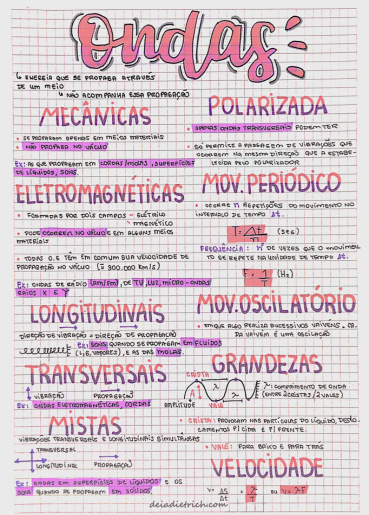 Ondas
↳ ENERGIA QUE SE PROPAGA ATRAVÉS
DE UM MEIO
↳ NÃO ACOMPANHA ESSA PROPAGAÇÃO
MECÂNICAS
• SE PROPAGAM APENAS EM MEIOS MATERIAIS
• NÃO PROPAGA NO VÁCUO
Ex: AS QUE PROPAGAM EM CORDAS, MOLAS, SUPERFÍCIES
DE LÍQUIDOS, SONS.
ELETROMAGNÉTICAS
• FORMADAS POR DOIS CAMPOS - ELÉTRICO
MAGNÉTICO
• PODE OCORRER NO VÁCUO E EM ALGUNS MEIOS
MATERIAIS
• TODAS O.E TÊM EM COMUM SUA VELOCIDADE DE
PROPAGAÇÃO NO VÁCUO (≅ 300.000 Km/s)
Ex: ONDAS DE RÁDIO (AM/FM), DE TV, LUZ, MICRO-ONDAS
RAIOS X E γ
LONGITUDINAIS
DIREÇÃO DE VIBRAÇÃO = DIREÇÃO DE PROPAGAÇÃO
Ex: SONS QUANDO SE PROPAGAM EM FLUIDOS
VAPORES), E AS DAS MOLAS.
TRANSVERSAIS
VIBRAÇÃO PROPAGAÇÃO
Ex: ONDAS ELETROMAGNÉTICAS, CORDAS
MISTAS
VIBRAÇÕES TRANSVERSAIS E LONGITUDINAIS SIMULTÂNEAS
TRANSVERSAL
LONGITUDINAL PROPAGAÇÃO
Ex: ONDAS EM SUPERFÍCIES DE LÍQUIDOS E OS
SONS QUANDO SE PROPAGAM EM SÓLIDOS
POLARIZADA
• APENAS ONDAS TRANSVERSAIS PODEM TER
• SÓ PERMITE A PASSAGEM DE VIBRAÇÕES QUE
OCORRAM NA MESMA DIREÇÃO QUE A ESTABE-
LECIDA PELO POLARIZADOR
MOV. PERIÓDICO
• OCORRE n REPETIÇÕES DO MOVIMENTO NO
INTERVALO DE TEMPO Δt.
T = Δt/n (seg)
FREQUÊNCIA: Nº DE VEZES QUE O MOVIMEN
TO SE REPETE NA UNIDADE DE TEMPO Δt.
F = 1/T (Hz)
MOV. OSCILATÓRIO
• EM QUE ALGO REALIZA SUCESSIVOS VAIVÉNS. CADA
VAIVÉM É UMA OSCILAÇÃO
GRANDEZAS
CRISTA
A λ λ
λ: COMPRIMENTO DE ONDA
(ENTRE 2 CRISTAS / 2 VALES)
AMPLITUDE VALE
• CRISTA: PROVOCAM NAS PARTÍCULAS DO LÍQUIDO, DESLO-
CAMENTOS P/ CIMA E P/ FRENTE.
• VALE: PARA BAIXO E PARA TRÁS
VELOCIDADE
V = ΔS/Δt = λ/T OU V = λF
deiadietrich.com